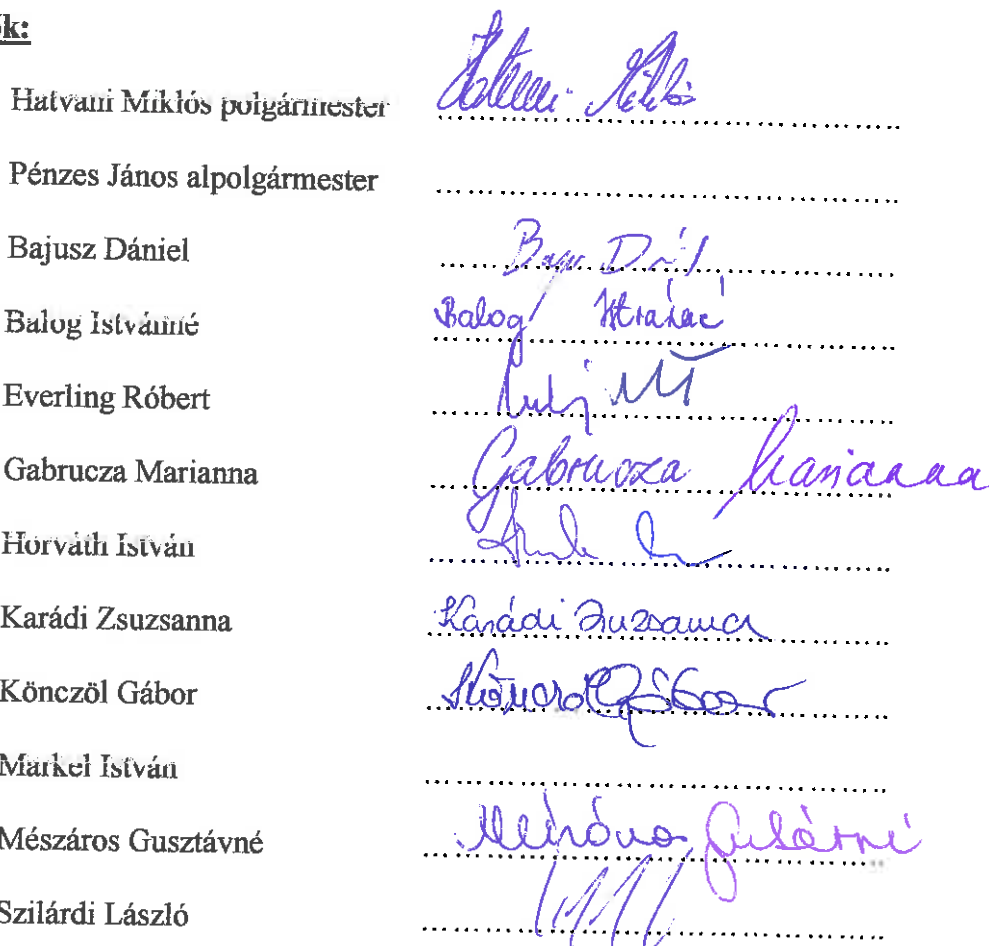 ők:
Hatvani Miklós polgármester Hatvani Miklós
Pénzes János alpolgármester
Bajusz Dániel
Balog Istvánné Balog Istvánné
Everling Róbert
Gabrucza Marianna Gabrucza Marianna
Horváth István
Karádi Zsuzsanna Karádi Zsuzsanna
Könczöl Gábor Könczöl Gábor
Markel István
Mészáros Gusztávné Mészáros Gusztávné
Szilárdi László